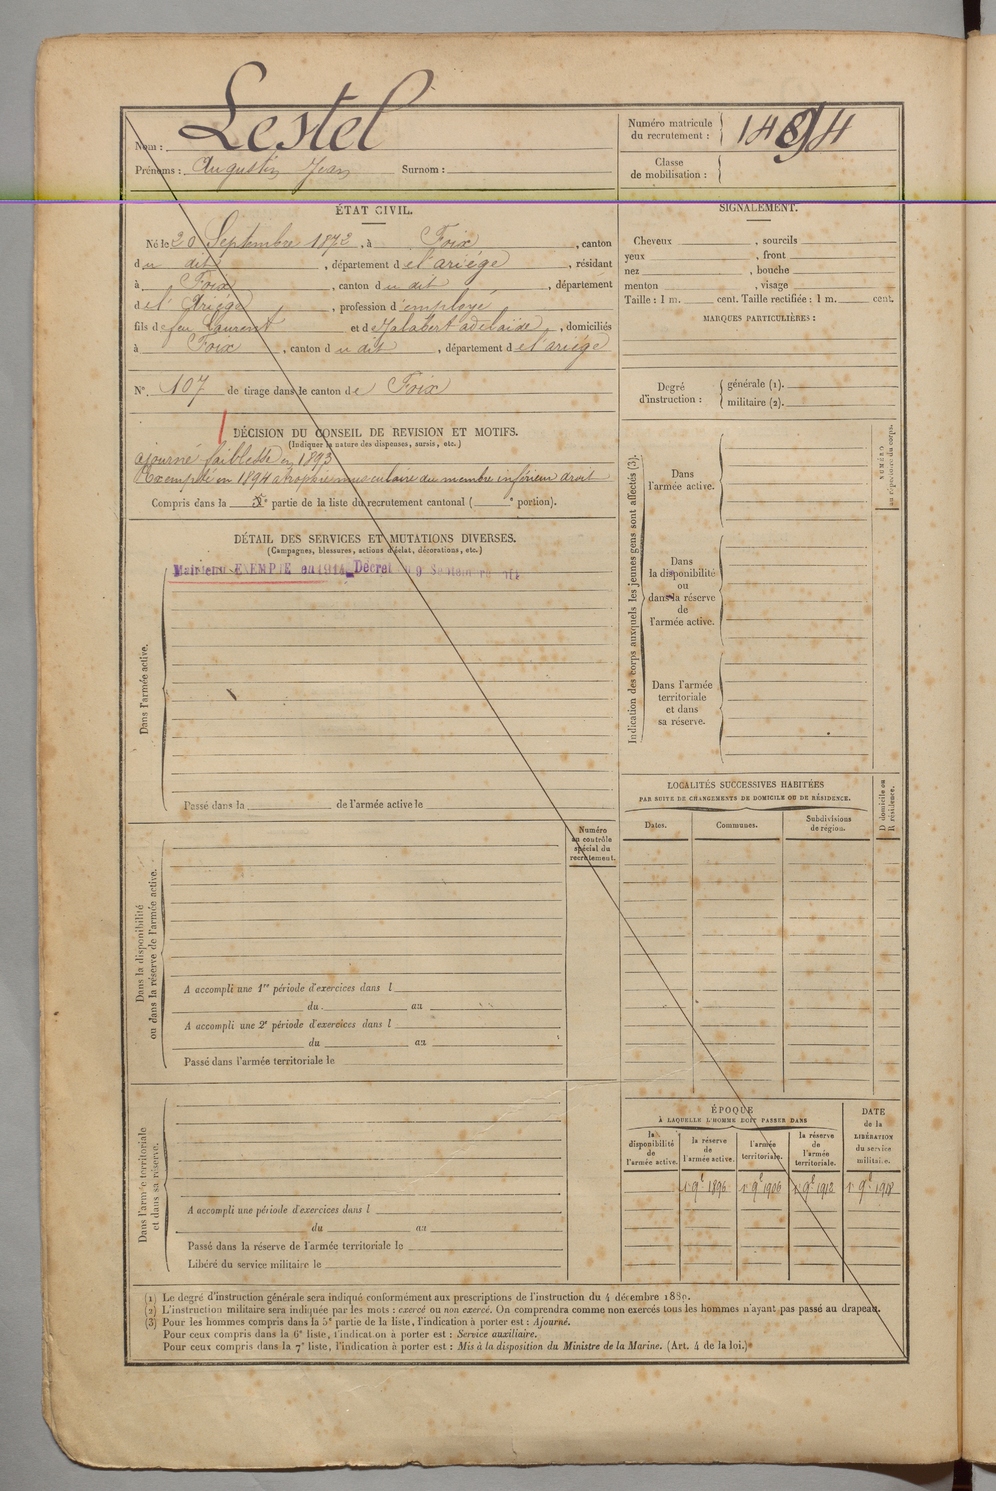 Nom : Lestel
Prénoms : Augustin Jean Surnom :
Numéro matricule
du recrutement :
Classe
de mobilisation :
ÉTAT CIVIL.
Né le 20 Septembre 1872, à Foix, canton
du dit, département de l'ariège, résidant
à Foix, canton du dit, département
de l'Ariège, profession d'employé
fils de feu Laurent et de Jalabert adelaïde, domiciliés
à Foix, canton du dit, département de l'ariège
N° 107 de tirage dans le canton de Foix
DÉCISION DU CONSEIL DE REVISION ET MOTIFS.
(Indiquer la nature des dispenses, sursis, etc.)
ajourné faiblesse en 1893
Exempté en 1894 atrophie musculaire du membre inférieur droit
Compris dans la e partie de la liste du recrutement cantonal ( e portion).
DÉTAIL DES SERVICES ET MUTATIONS DIVERSES.
(Campagnes, blessures, actions d'éclat, décorations, etc.)
Maintenu EXEMPTÉ en 1914 Décret du 9 Septembre 1914
Dans l'armée active.
Passé dans la de l'armée active le
Numéro
au contrôle
spécial du
recrutement.
Dans la disponibilité
ou dans la réserve de l'armée active.
A accompli une 1re période d'exercices dans l
du au
A accompli une 2e période d'exercices dans l
du au
Passé dans l'armée territoriale le
Dans l'armée territoriale
et dans sa réserve.
A accompli une période d'exercices dans l
du au
Passé dans la réserve de l'armée territoriale le
Libéré du service militaire le
SIGNALEMENT.
Cheveux , sourcils
yeux , front
nez , bouche
menton , visage
Taille : 1 m. cent. Taille rectifiée : 1 m. cent.
MARQUES PARTICULIÈRES :
Degré
d'instruction :
générale (1).
militaire (2).
Indication des corps auxquels les jeunes gens sont affectés (3).
NUMÉRO
au répertoire du corps.
Dans
l'armée active.
Dans
la disponibilité
ou
dans la réserve
de
l'armée active.
Dans l'armée
territoriale
et dans
sa réserve.
LOCALITÉS SUCCESSIVES HABITÉES
PAR SUITE DE CHANGEMENTS DE DOMICILE OU DE RÉSIDENCE.
Dates. Communes. Subdivisions
de région.
D domicile ou
R résidence.
ÉPOQUE
À LAQUELLE L'HOMME DOIT PASSER DANS
la
disponibilité
de
l'armée active.
la réserve
de
l'armée active.
l'armée
territoriale.
la réserve
de
l'armée
territoriale.
DATE
de la
LIBÉRATION
du service
militaire.
1r 9e 1896 1r 9e 1906 1r 9e 1912 1r 9e 1918
(1) Le degré d'instruction générale sera indiqué conformément aux prescriptions de l'instruction du 4 décembre 1889.
(2) L'instruction militaire sera indiquée par les mots : exercé ou non exercé. On comprendra comme non exercés tous les hommes n'ayant pas passé au drapeau.
(3) Pour les hommes compris dans la 5e partie de la liste, l'indication à porter est : Ajourné.
Pour ceux compris dans la 6e liste, l'indication à porter est : Service auxiliaire.
Pour ceux compris dans la 7e liste, l'indication à porter est : Mis à la disposition du Ministre de la Marine. (Art. 4 de la loi.)